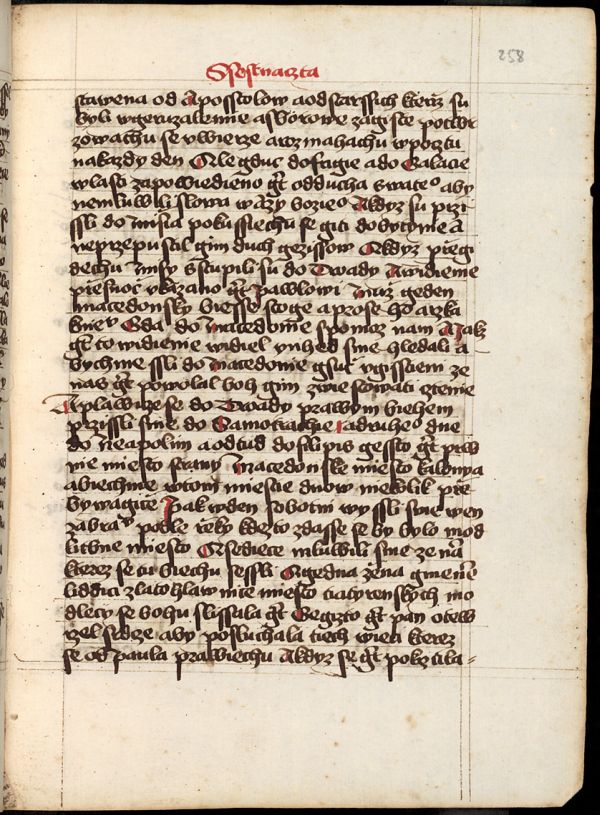 258
Ssestnaczta
stawena od Aposstolow a od starssich kteriz su
byli wgeruzalemie a sborowe zagiste potwr
zowachu se vwierze a rozmahachu wpocztu
nakazdy den A kdyz gduc do frigie a do Galacie
wlasti zapowiedieno gt od ducha swate° aby
nemluwili slowa wazy bozie° A kdyz su przi
ssli do misia pokussiechu se giti do bytynie A
neprzepustil gim duch gezissow A kdyz przegi
dechu misy sstupili su do Troady A widienie
przes noc vkazano gt pawlowi Muz geden
macedonsky biesse stoge a prose ho a rzka
k nie° Gda do Macedonie spomoz nam A jakz
gt to widienie widiel ynhed sme hledali a
bychme ssli do macedonie gsuc vgisstieni ze
nas gt powolal boh gim zwiestowati cztenie
A plawiwsse se do Troady prawym biehem
przissli sme do Samotrachie a druhe° dne
do neapolim a odtud do filipis gessto gt prw
nie miesto strany Macedonske miesto kolonya
a biechme wtom miestie dnow niekolik prze
bywagice Pak wden sobotni wyssli sme wen
zabra° podle rzeky kdezto zdasse se by bylo mod
litbne miesto A sediece mluwili sme zena
kterez se tu biechu sessli A gedna zena gmene°
liddici zlatohlawnicie miesto tiatyrenskych mo
dleci se bohu slissala gt Gegizto gt pan otew
rzel srdce aby posluchala tiech wieci kterez
se od paula prawiechu A kdyz se gt pokrztila